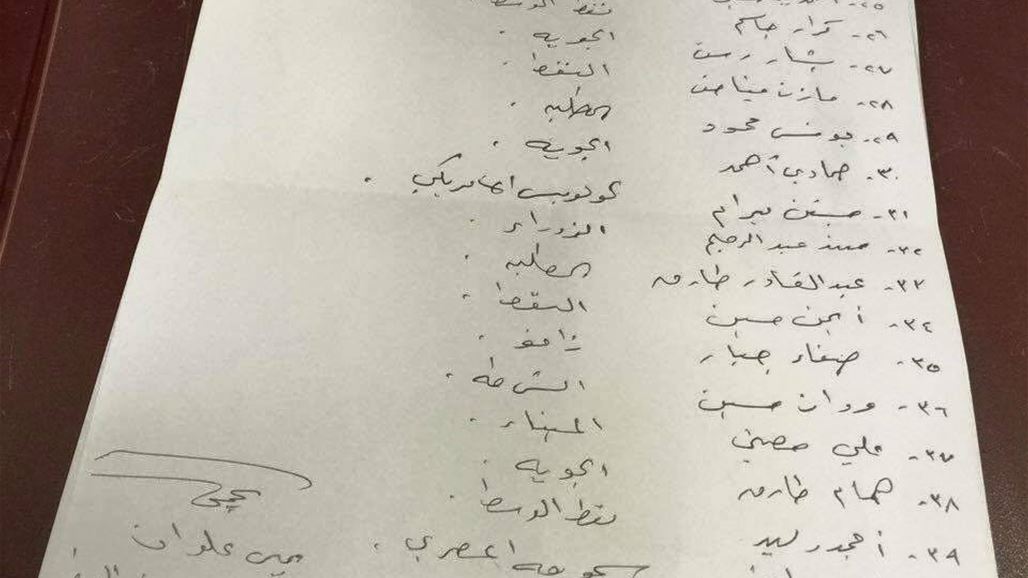 ٢٥-
نفط الوسط
٢٦- كرار جاسم
الجوية .
٢٧- بشار رسن
النفط .
٢٨- مازن فياض
الطلبه .
٢٩- يونس محمود
الجوية .
٣٠- حمادي أحمد
كولومبس الامريكي .
٣١- جستن ميرام
الزوراء .
٣٢- مهند عبد الرحيم
الطلبه .
٣٣- عبد القادر طارق
النفط .
٣٤- أيمن حسين
زاخو .
٣٥- صفاء جبار
الشرطه .
٣٦- مروان حسين
الميناء .
٣٧- علي حصني
الجوية .
٣٨- همام طارق
نفط الوسط .
٣٩- أمجد وليد
المصري .
يحيى
يحيى علوان